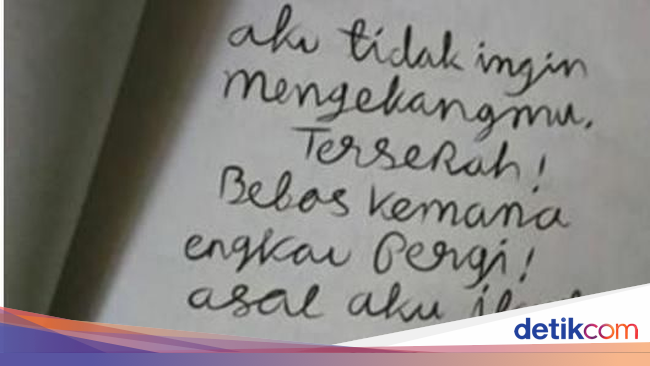 aku tidak ingin
mengekangmu.
Terserah!
Bebas kemana
engkau pergi!
asal aku
detikcom